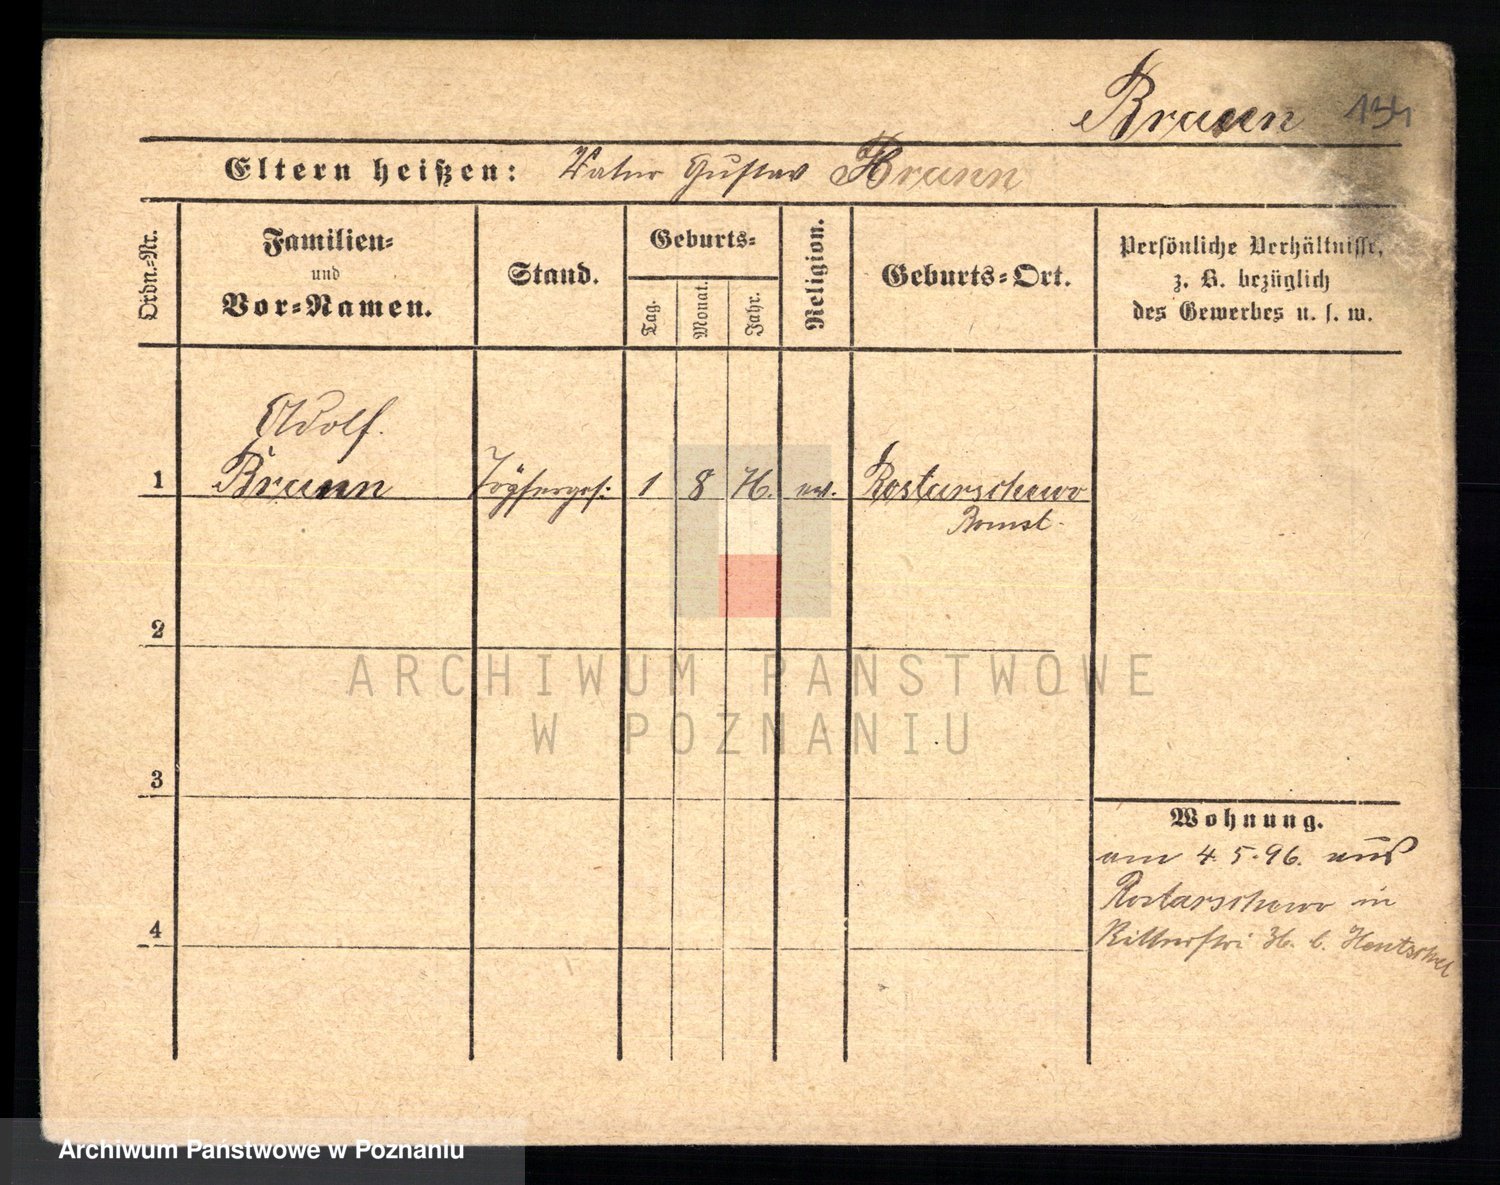 Braun 134
Eltern heißen: Vater Gustav Braun
Ordn.-Nr.
Familien-
und
Vor-Namen.
Stand.
Geburts-
Tag.
Monat.
Jahr.
Religion.
Geburts-Ort.
Persönliche Verhältnisse,
z. B. bezüglich
des Gewerbes u. s. w.
Adolf.
1 Braun Töpferges: 1 8 76. ev. Rostarschewo
Bomst.
2
3
4
Wohnung.
am 4.5.96. aus
Rostarschewo in
Ritterstr. b. Hentschel
ARCHIWUM PAŃSTWOWE
W POZNANIU
Archiwum Państwowe w Poznaniu